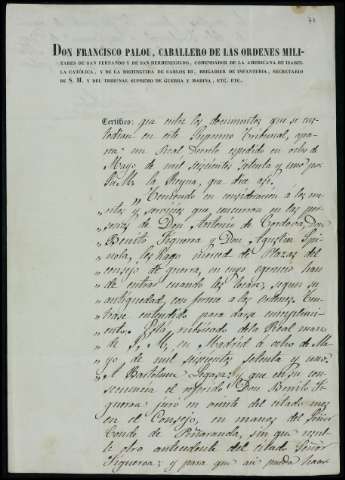 DON FRANCISCO PALOU, CABALLERO DE LAS ORDENES MILI-
TARES DE SAN FERNANDO Y DE SAN HERMENEGILDO, COMENDADOR DE LA AMERICANA DE ISABEL
LA CATÓLICA, Y DE LA DISTINGUIDA DE CARLOS III, BRIGADIER DE INFANTERIA, SECRETARIO
DE S. M. Y DEL TRIBUNAL SUPREMO DE GUERRA Y MARINA, ETC. ETC.
Certifico: que entre los documentos que se cus-
todian en este Supremo Tribunal, apa-
rece un Real Decreto expedido en ocho de
Mayo de mil seiscientos setenta y uno por
S. M. la Reyna, que dice asi.
"Teniendo en consideración a los me-
" ritos y servicios que concurren en las per-
" sonas de Don Antonio de Cordova, Don
" Benito Figueroa y Don Agustin Spi-
" nola, les hago merced de Plazas del
" consejo de guerra, en cuyo egercicio han
" de entrar cuando les toque, segun su
" antiguedad, conforme a las ordenes. Ten-
" drase entendido para darse cumplimien-
" to. Esta rubricado de la Real mano
" de S. M. en Madrid a ocho de Ma-
" yo de mil seiscientos setenta y uno.
" A Bartolome Legasa", y que en su con-
secuencia el referido Don Benito Fi-
gueroa juró en veinte del citado mes
en el Consejo, en manos del Señor
Conde de Peñaranda, sin que resul-
te otro antecedente del citado Señor
Figueroa; y para que asi pueda hacer